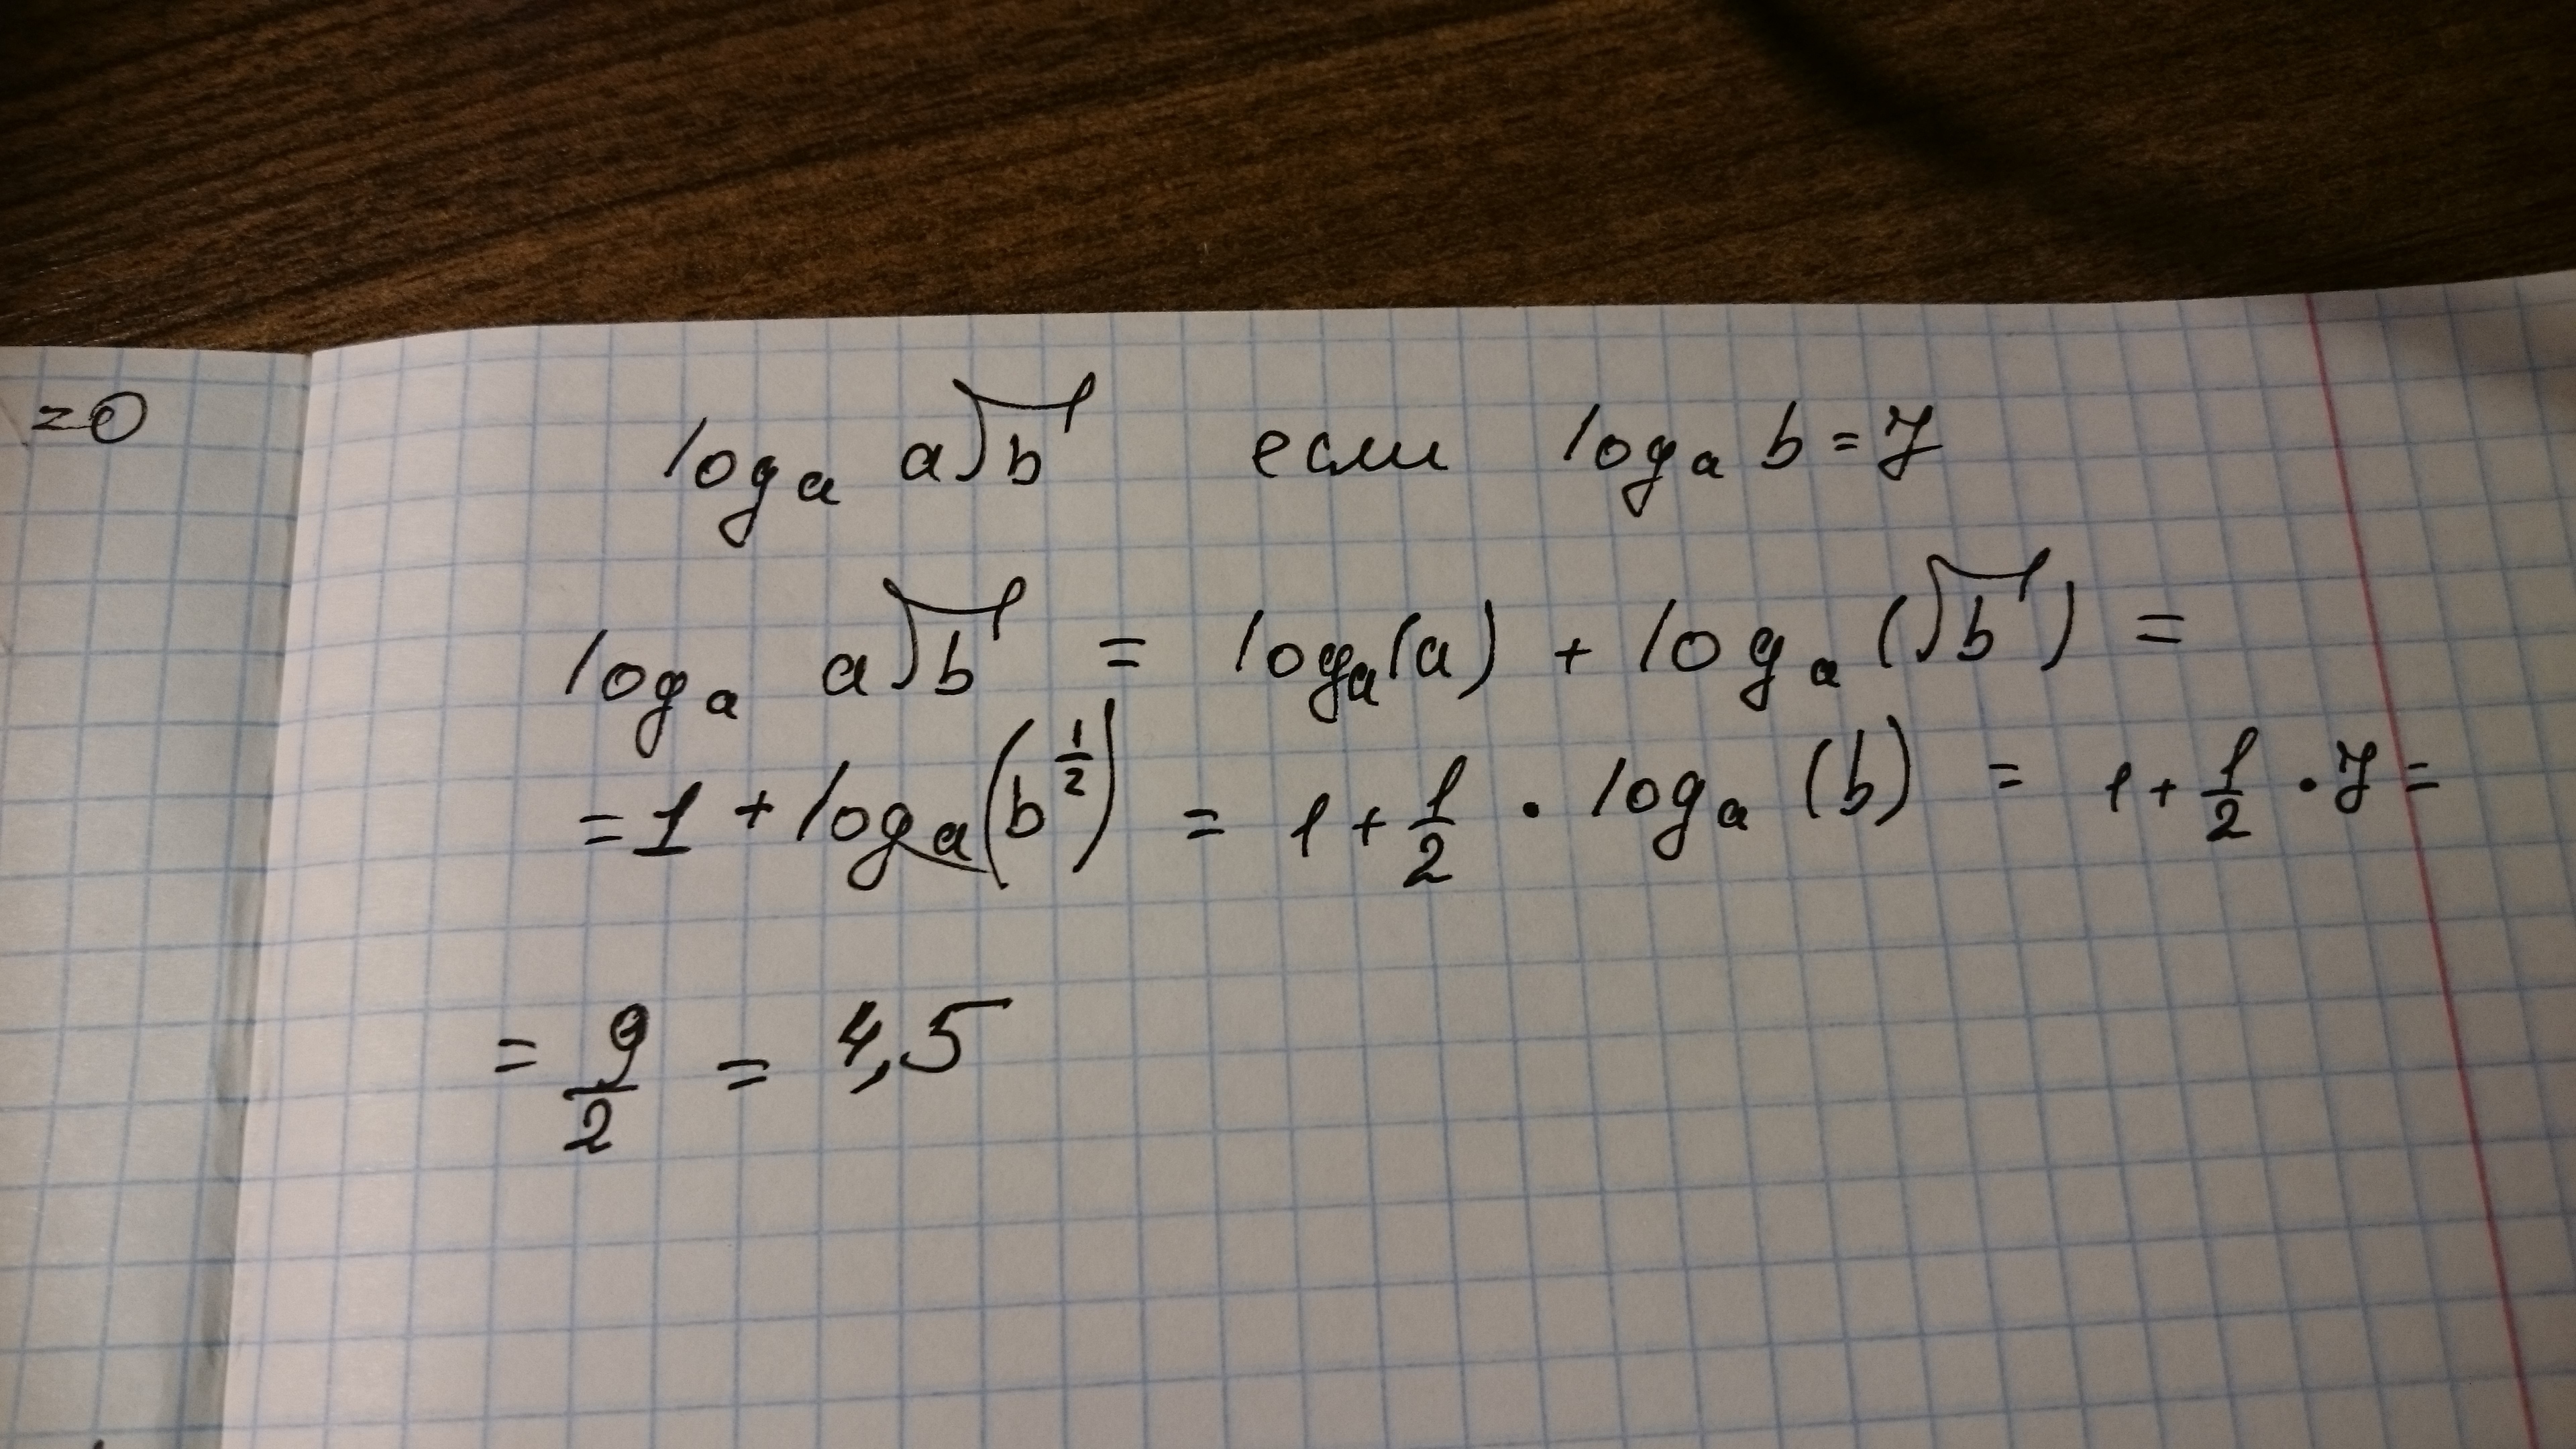 =0
logₐ a√b если logₐ b = 7
logₐ a√b = logₐ(a) + logₐ(√b) =
= 1 + logₐ(b^(1/2)) = 1 + 1/2 · logₐ (b) = 1 + 1/2 · 7 =
= 9/2 = 4,5